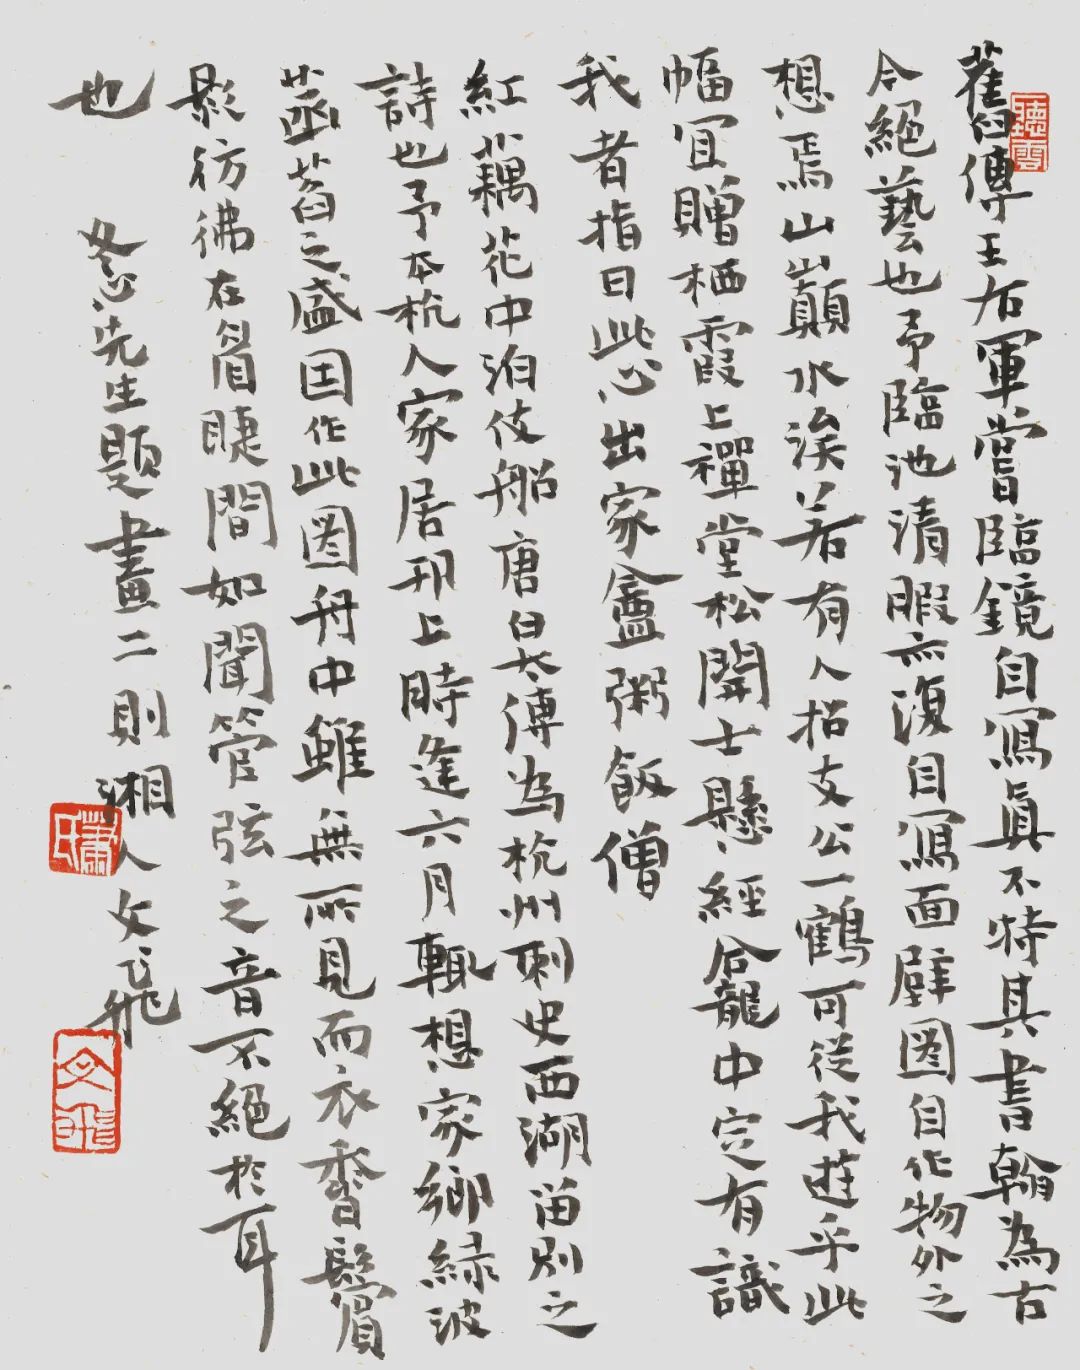 聽雲
舊傳王右軍嘗臨鏡自寫真不特具書翰為古
今絕藝也予臨池清暇亦復自寫面壁圖自作物外之
想焉山巔水涘若有人招支公一鶴可從我遊乎此
幅宜贈栖霞上禪堂松閒開士懸經龕中定有識
我者指曰此心出家盦粥飯僧
紅藕花中泊伎船唐白太傅為杭州刺史西湖留別之
詩也予本杭人家居邗上時逢六月輒想家鄉綠波
菡萏之盛因作此圖舟中雖無所見而衣香鬢
影彷彿在眉睫間如聞管弦之音不絕於耳
也 冬心先生題畫二則湘人文飛
蕭氏
文飛